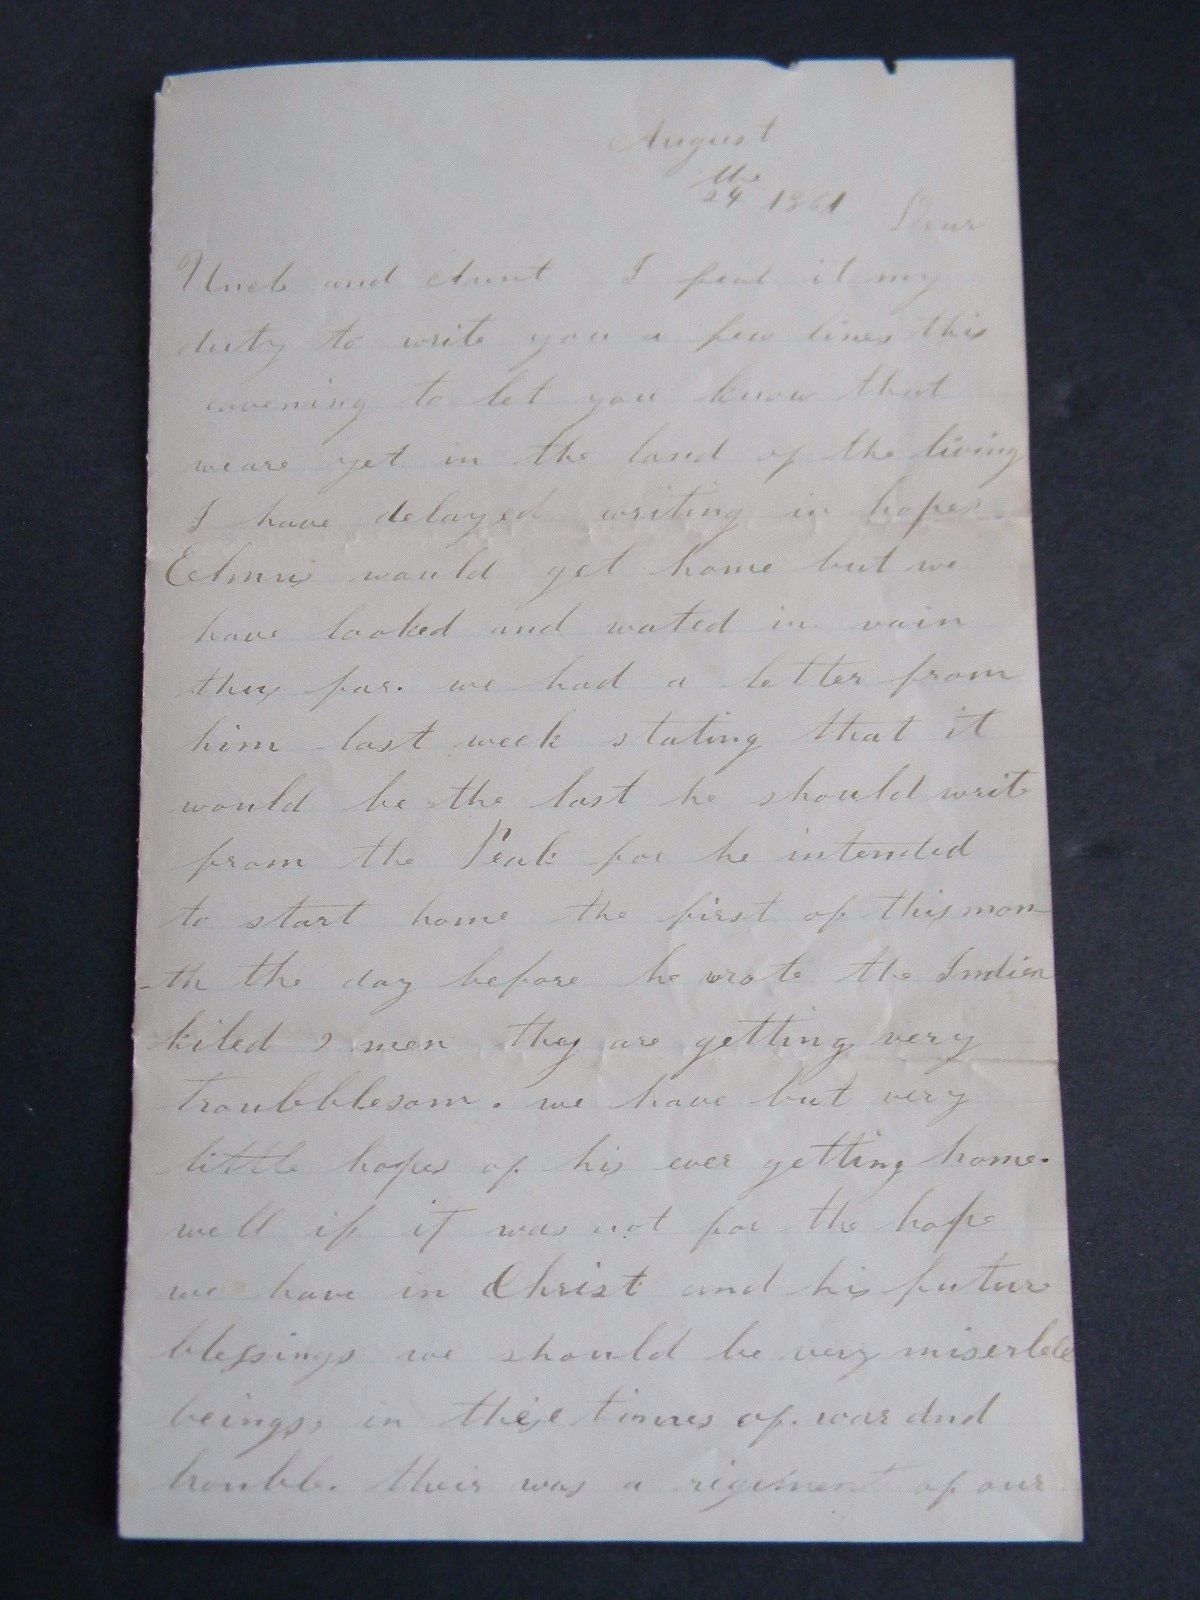 August
the
24 1861 Dear
Uncle and Aunt I feal it my
duty to write you a few lines this
eavening to let you know that
we are yet in the land of the living
I have delayed writing in hopes
would get home but we
have looked and wated in vain
thus far. we had a letter from
him last week stating that it
would be the last he should write
from the Peak for he intended
to start home the first of this mon
-th the day before he wrote the Indien
kiled men they are getting very
troubblesom. we have but very
little hopes of his ever getting home.
well if it was not for the hope
we have in Christ and his futur
blessings we should be very miserbele
beings, in these times of war and
troubl. their was a rigiment of our